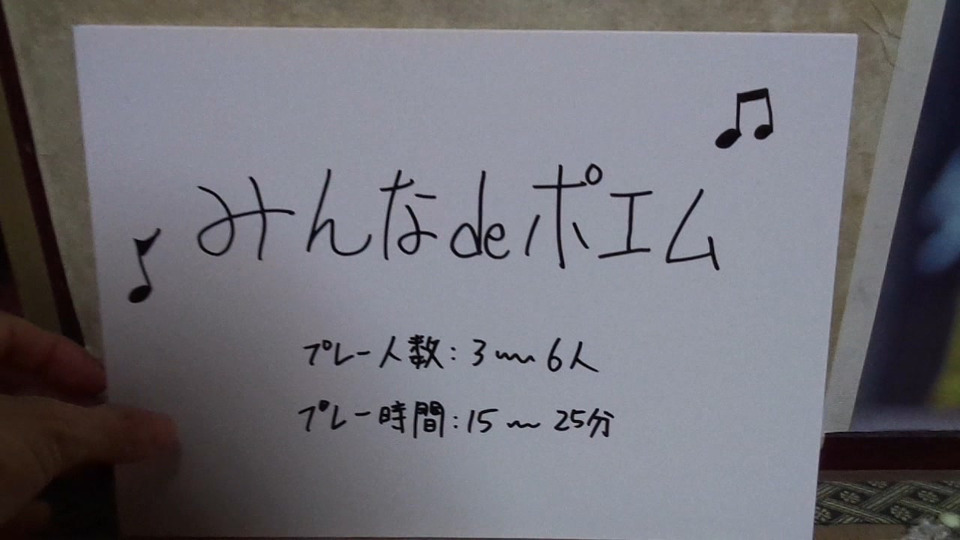 みんなdeポエム
プレー人数:3〜6人
プレー時間:15〜25分